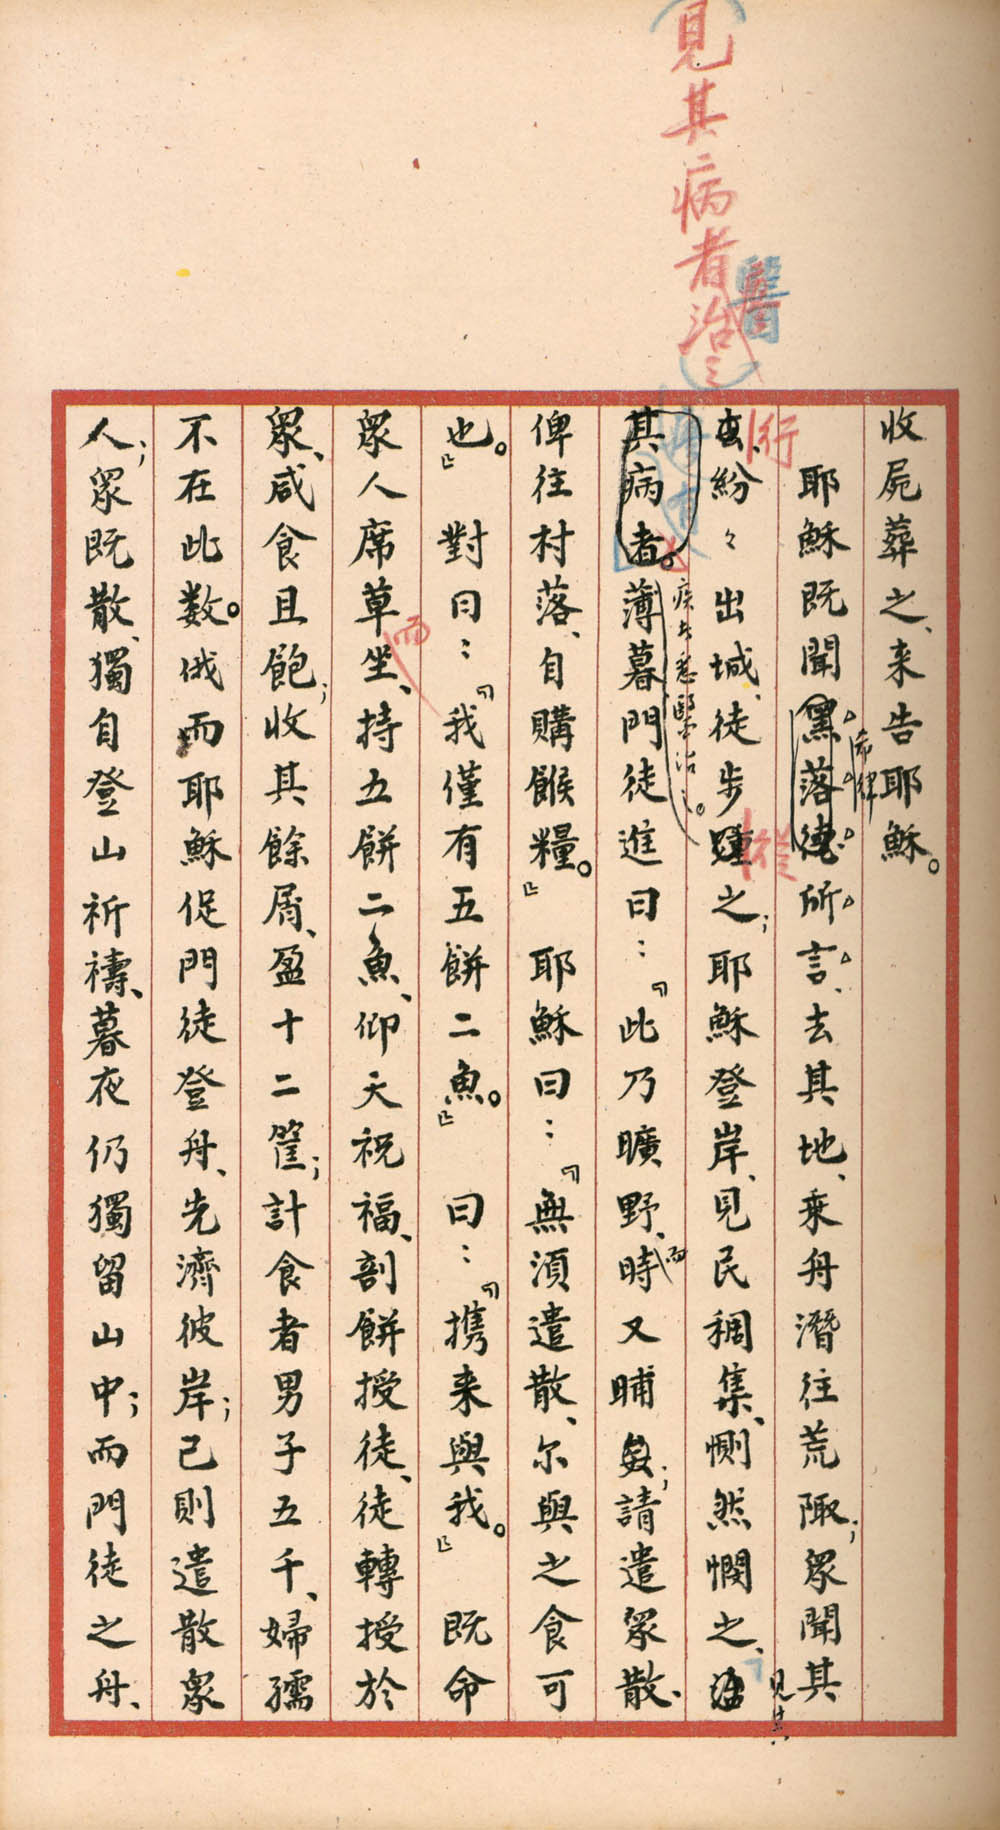 見其病者治之
醫
收屍葬之、来告耶穌。
耶穌既聞黑落德所言、去其地、乘舟潛往荒陬；眾聞其
希律
行
去、紛々出城、徒步踵之；耶穌登岸、見民稠集、惻然憫之、治
從
見其
其病者。薄暮門徒進曰：『此乃曠野、時又晡矣；請遣眾散、
疾者悉醫治之。
而
俾往村落、自購餱糧。』耶穌曰：『無須遣散、尔與之食可
也。』對曰：『我僅有五餅二魚。』曰：『攜来與我。』既命
眾人席草坐、持五餅二魚、仰天祝福、剖餅授徒、徒轉授於
而
眾、咸食且飽；收其餘屑、盈十二筐；計食者男子五千、婦孺
不在此数。俄而耶穌促門徒登舟、先濟彼岸；己則遣散眾
人；眾既散、獨自登山祈禱、暮夜仍獨留山中；而門徒之舟、